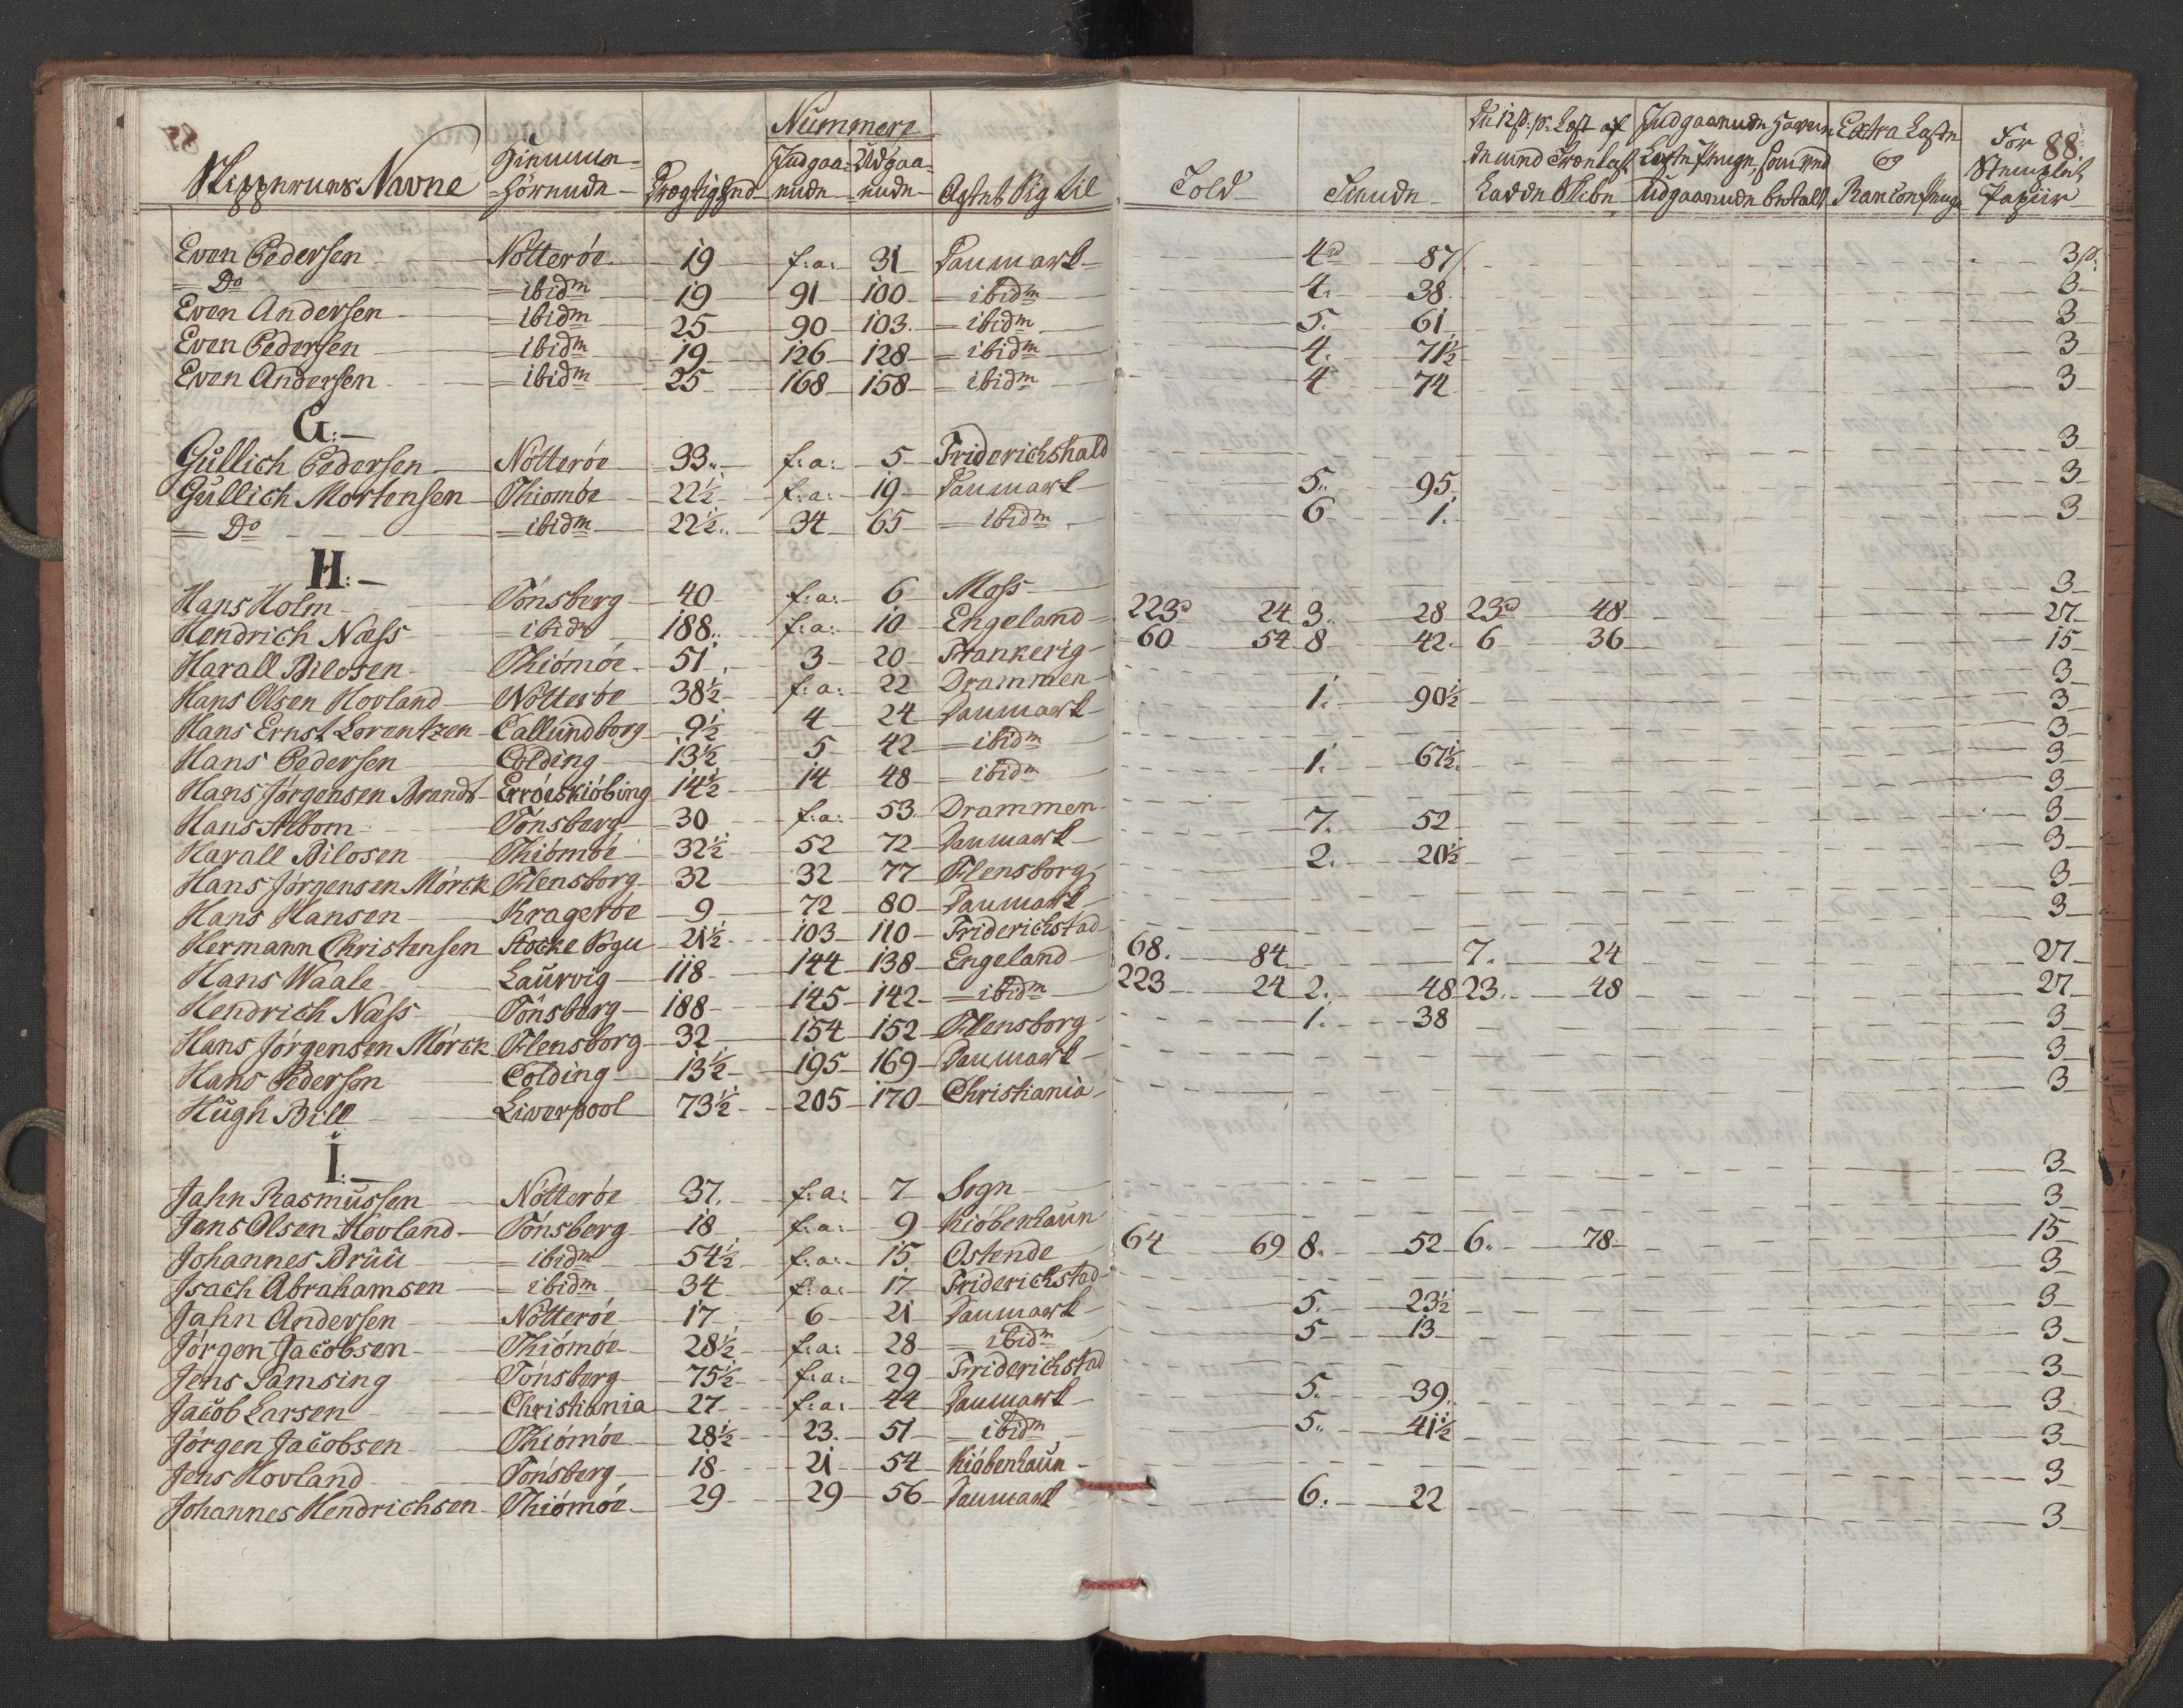 Nummere
Skippernes Navne Hiemme= Drægtighed Indgaa= Udgaa= Agtet sig til
=hörende nde nde
Even Pedersen Nötteröe 19 f:a: 31 Danmark
Do ibidm 19 91 100 ibidm
Even Andersen ibidm 25 90 103 ibidm
Even Pedersen ibidm 19 126 128 ibidm
Even Andersen ibidm 25 168 158 ibidm
G:
Gullich Pedersen Nötteröe 33 f:a: 5 Friderichshald
Gullich Mortensen Thiomöe 22½ f:a: 19 Danmark
Do ibidm 22½ 34 65 ibidm
H:
Hans Holm Tönsberg 40 f:a: 6 Moss
Hendrich Næss ibidm 188 f:a: 10 Engeland
Harall Bilosen Thiömöe 51 3 20 Frankerig
Hans Olsen Hovland Nötteröe 38½ f:a: 22 Drammen
Hans Ernst Lorentzen Callundborg 9½ 4 24 Danmark
Hans Pedersen Colding 13½ 5 42 ibidm
Hans Jörgensen Brandt Erröeskiöbing 14½ 14 48 ibidm
Hans Albom Tönsberg 30 f:a: 53 Drammen
Harall Bilosen Thiömöe 32½ 52 72 Danmark
Hans Jörgensen Mörck Flensborg 32 32 77 Flensborg
Hans Hansen Krageröe 9 72 80 Danmark
Hermann Christensen Stocke Sogn 21½ 103 110 Friderichstad
Hans Waale Laurvig 118 144 138 Engeland
Hendrich Næss Tönsberg 188 145 142 ibidm
Hans Jörgensen Mörck Flensborg 32 154 152 Flensborg
Hans Pedersen Colding 13½ 195 169 Danmark
Hugh Bill Liverpool 73½ 205 170 Christiania
I:
Jahn Rasmussen Nötteröe 37 f:a: 7 Sogn
Jens Olsen Hovland Tönsberg 18 f:a: 9 Kiöbenhaun
Johannes Bruu ibidm 54½ f:a: 15 Ostende
Isach Abrahamsen ibidm 34 f:a: 17 Friderichstad
Jahn Andersen Nötteröe 17 6 21 Danmark
Jörgen Jacobsen Thiömöe 28½ f:a: 28 ibidm
Jens Samsing Tönsberg 75½ f:a: 29 Friderichstad
Jacob Larsen Christiania 27 f:a: 44 Danmark
Jörgen Jacobsen Thiömöe 28½ 23 51 ibidm
Jens Hovland Tönsberg 18 21 54 Kiöbenhaun
Johannes Hendrichsen Thiömöe 29 29 56 Danmark
88
De 12 s. pr. Læst af Indgaaende Havne Extra Læste For
Told Læste Penge, som ved og Stemplet
Udgaaende betalt Papiir
4 87 3
4 38 3
5 61 3
4 71½ 3
4 74 3
3
5 95 3
6 1 3
3
223 24 3 28 23 48 27
60 54 8 42 6 36 15
3
1 90½ 3
3
1 67½ 3
3
7 52 3
2 20½ 3
3
3
68 84 7 24 27
223 24 2 48 23 48 27
1 38 3
3
3
3
3
64 69 8 52 6 78 15
3
5 23½ 3
5 13 3
3
5 39 3
5 41½ 3
3
6 22 3